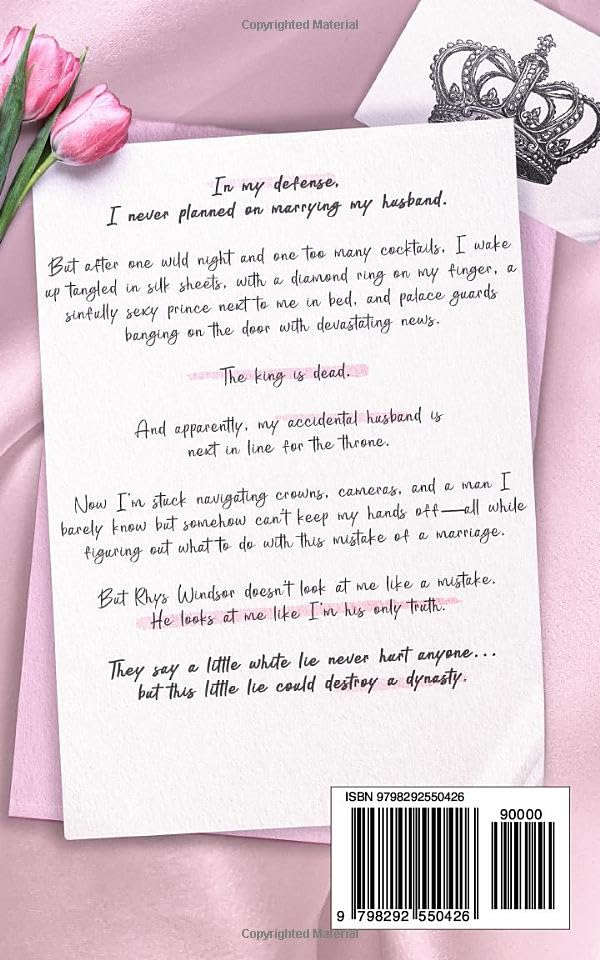 Copyrighted Material
In my defense,
I never planned on marrying my husband.
But after one wild night and one too many cocktails, I wake
up tangled in silk sheets, with a diamond ring on my finger, a
sinfully sexy prince next to me in bed, and palace guards
banging on the door with devastating news.
The king is dead.
And apparently, my accidental husband is
next in line for the throne.
Now I'm stuck navigating crowns, cameras, and a man I
barely know but somehow can't keep my hands off—all while
figuring out what to do with this mistake of a marriage.
But Rhys Windsor doesn't look at me like a mistake.
He looks at me like I'm his only truth.
They say a little white lie never hurt anyone...
but this little lie could destroy a dynasty.
ISBN 9798292550426
90000
9 798292 550426
Copyrighted Material